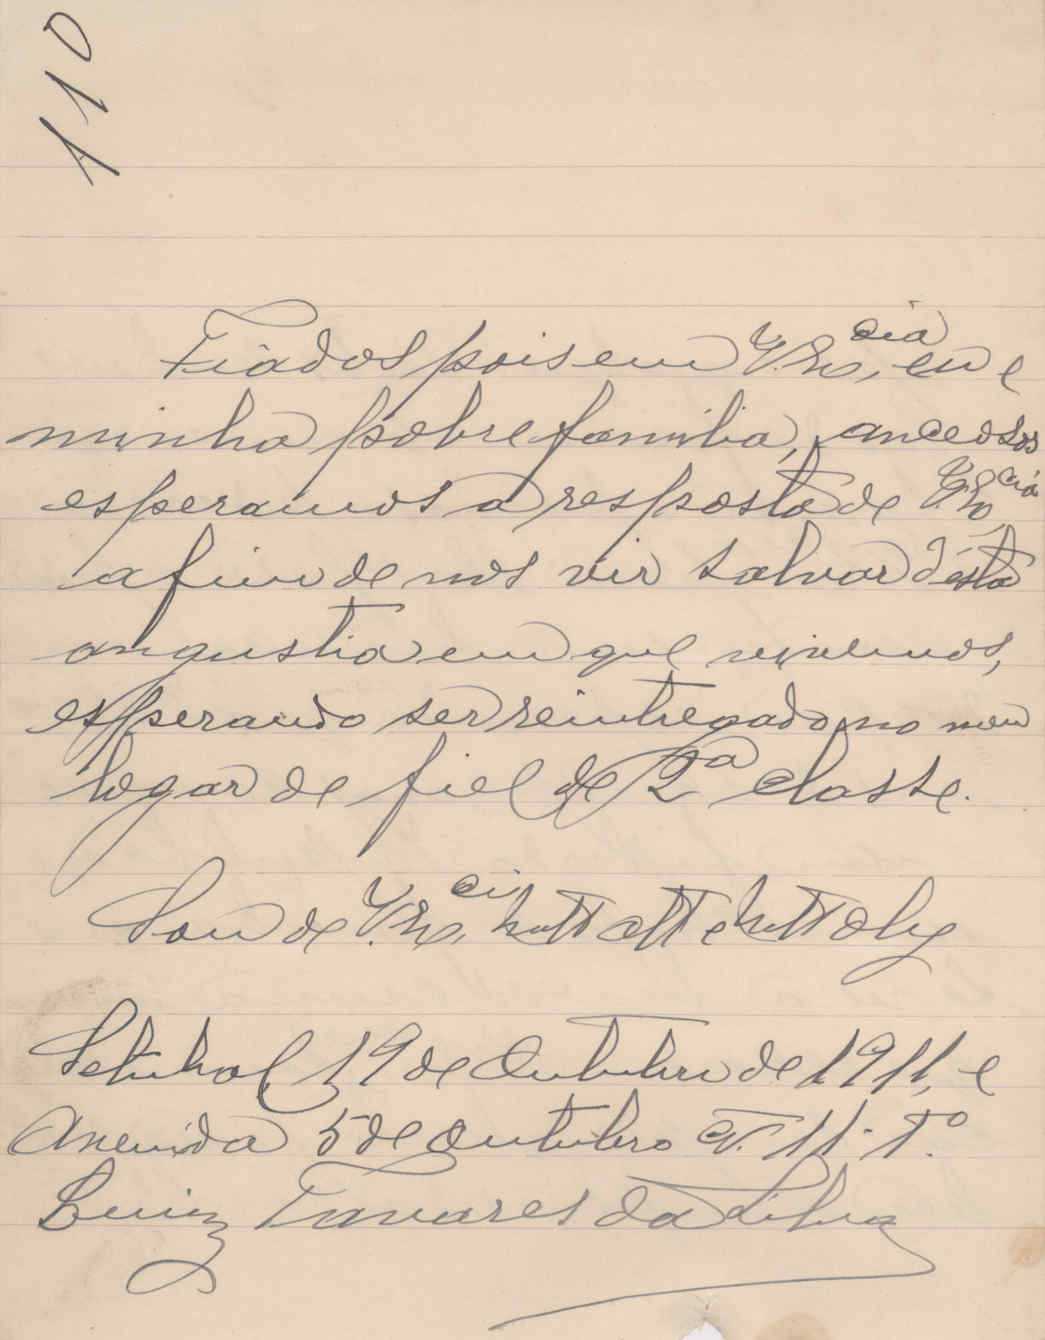 110
Fiados pois em V. Ex.cia, eu e
minha pobre familia, anceosos
esperamos a resposta de V. Ex.cia
afim de nos vir salvar d'ésta
angustia em que vivemos,
esperando ser reintregado no meu
logar de fiel de 2ª classe.
Sou de V. Ex.cia Mtt Att e Mtt Obg
Setubal 19 de Outubro de 1911, e
Avenida 5 de Outubro 11. 1.º
Luiz Tavares da Silva